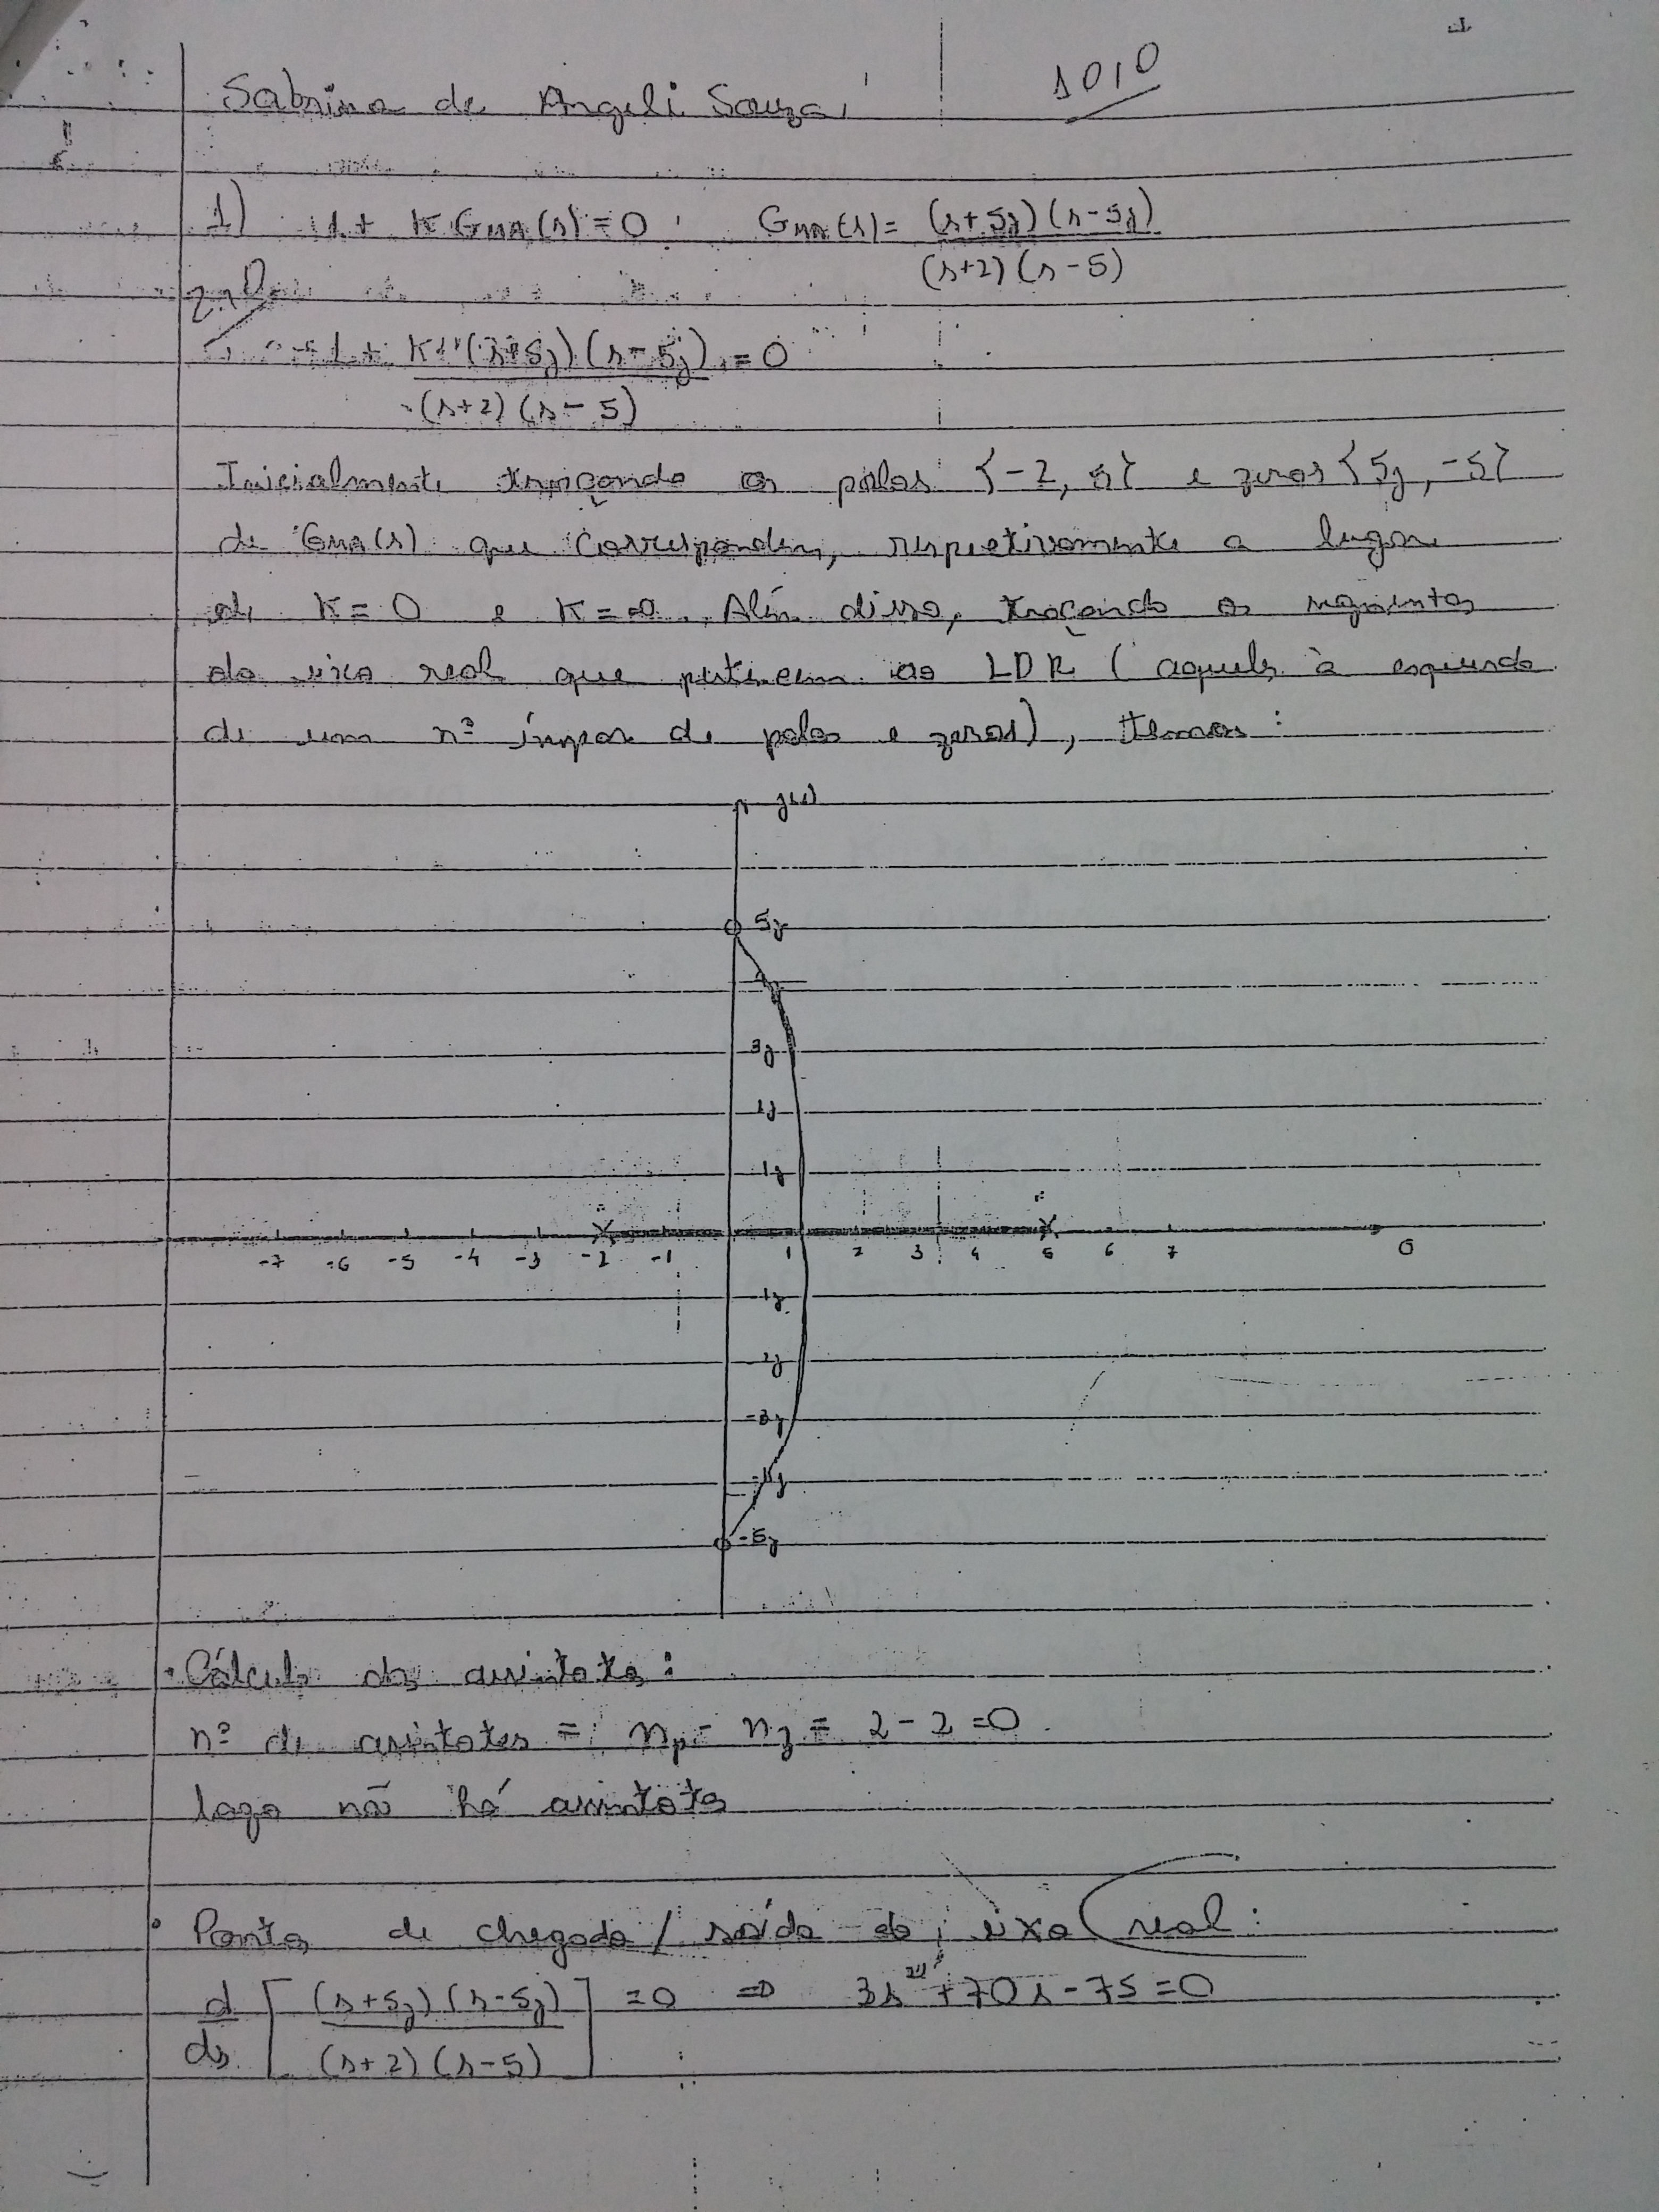 Sabrina de Angeli Souza
10,0
1) 1 + K GMA(s) = 0 GMA(s) = (s+5j)(s-5j) / (s+2)(s-5)
2,0
1 + K (s+5j)(s-5j) / (s+2)(s-5) = 0
Inicialmente traçando os polos {-2, 5} e zeros {5j, -5}
de GMA(s) que correspondem, respectivamente a lugar
de K = 0 e K = ∞. Além disso, traçando os segmentos
do eixo real que pertencem ao LDR (aqueles à esquerda
de um nº ímpar de polos e zeros), temos:
jω
5j
3j
1j
1j
-7 -6 -5 -4 -3 -2 -1 1 2 3 4 5 6 7 σ
-1j
-2j
-3j
-4j
-5j
• Cálculo das assintotas:
nº de assintotas = np - nz = 2 - 2 = 0.
logo não há assintotas
• Pontos de chegada / saída do eixo real:
d/ds [(s+5j)(s-5j) / (s+2)(s-5)] = 0 ⇒ 3s² + 70s - 75 = 0